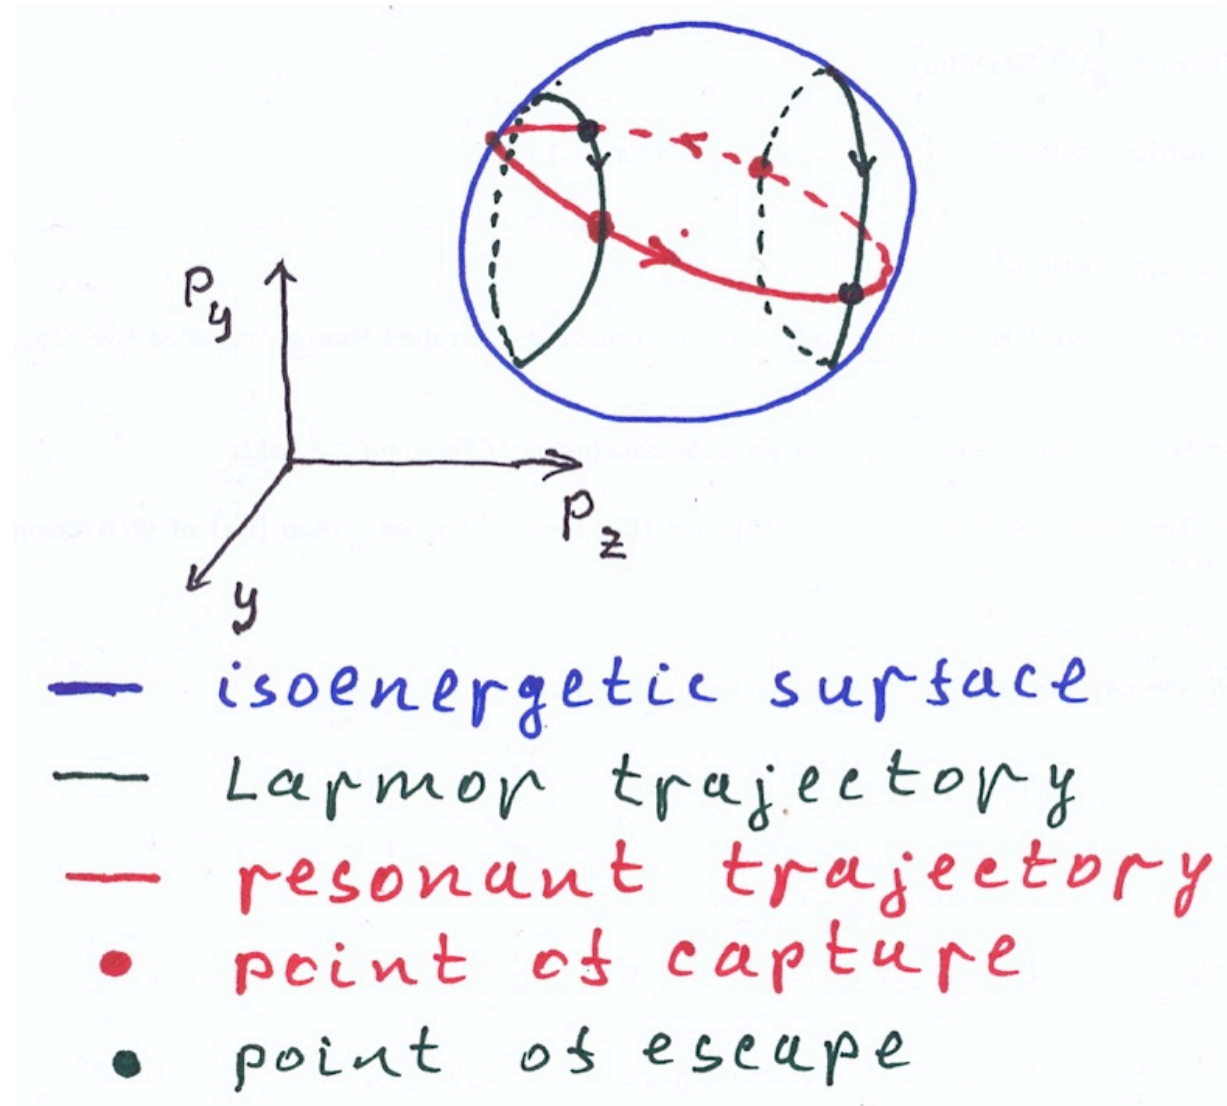 Py
Pz
y
isoenergetic surface
Larmor trajectory
resonant trajectory
point of capture
point of escape